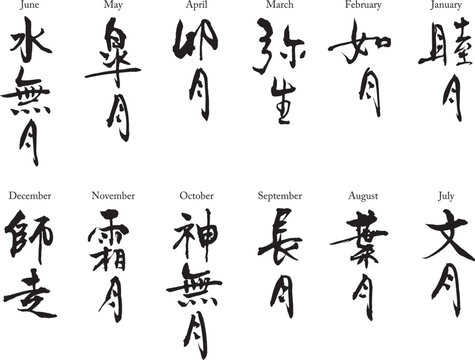 January
睦月
February
如月
March
弥生
April
卯月
May
皐月
June
水無月
July
文月
August
葉月
September
長月
October
神無月
November
霜月
December
師走